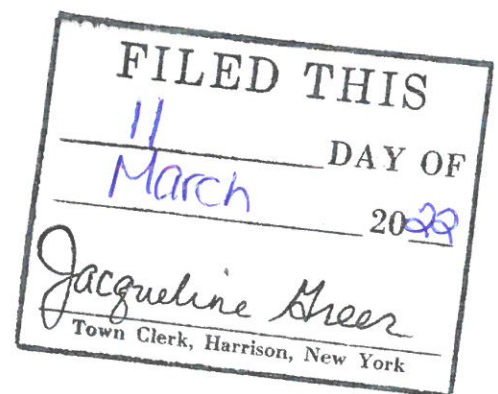 FILED THIS
11 DAY OF
March 2022
Jacqueline Greer
Town Clerk, Harrison, New York